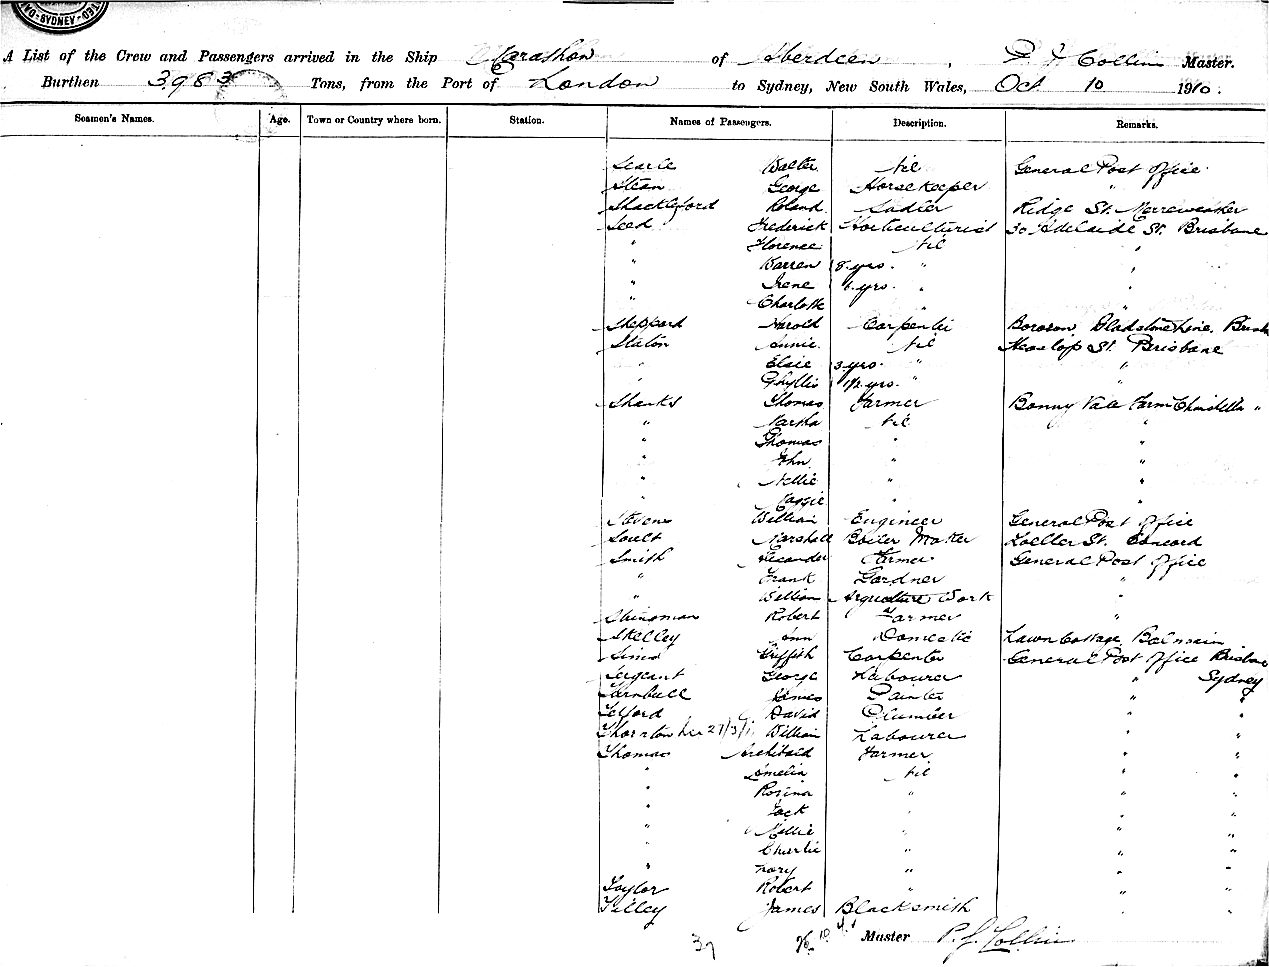 SYDNEY
A List of the Crew and Passengers arrived in the Ship Marathon of Aberdeen, P J Collins Master.
Burthen 3983 Tons, from the Port of London to Sydney, New South Wales, Oct 10 1910.
Seamen's Names. Age. Town or Country where born. Station. Names of Passengers. Description. Remarks.
Searle Walter Nil General Post Office
George Horsekeeper "
Shackleford Roland Sadler Ridge St. Merreweather
Seed Frederick Horticulturist 30 Adelaide St. Brisbane
" Florence Nil "
" Warren 8 yrs. " "
" Irene 6 yrs. " "
" Charlotte " "
Sheppard Harold Carpenter Gladstone Line
Annie Nil St. Brisbane
" Elsie 3 yrs. " "
" Phyllis 1/2 yrs. " "
Shanks Thomas Farmer Bonny Vale Farm "
" Martha Nil "
" Thomas " "
" John " "
" Nellie " "
" Maggie " "
Stevens William Engineer General Post Office
Soult Marshall Boiler Maker St. Concord
Smith Alexander Farmer General Post Office
" Frank Gardner "
" William Work "
Robert Farmer "
Skelley Ann Domestic Lawn Cottage, Balmain
Sims Griffith Carpenter General Post Office Brisbane
Sergeant George Labourer " Sydney
Turnbull James Painter " "
Telford David Plumber " "
Thornton 27/3/1 William Labourer " "
Thomas Archibald Farmer " "
" Amelia Nil " "
" Rosina " " "
" Jack " " "
" Nellie " " "
" Charlie " " "
" " " "
Taylor Robert " " "
Tilley James Blacksmith " "
37 Master P. J. Collins